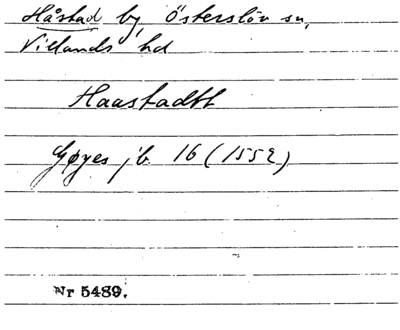 Håstad by, Österslöv sn,
Villands hd
Haastadtt
Gøyes jb 16 (1552)
Nr 5489.